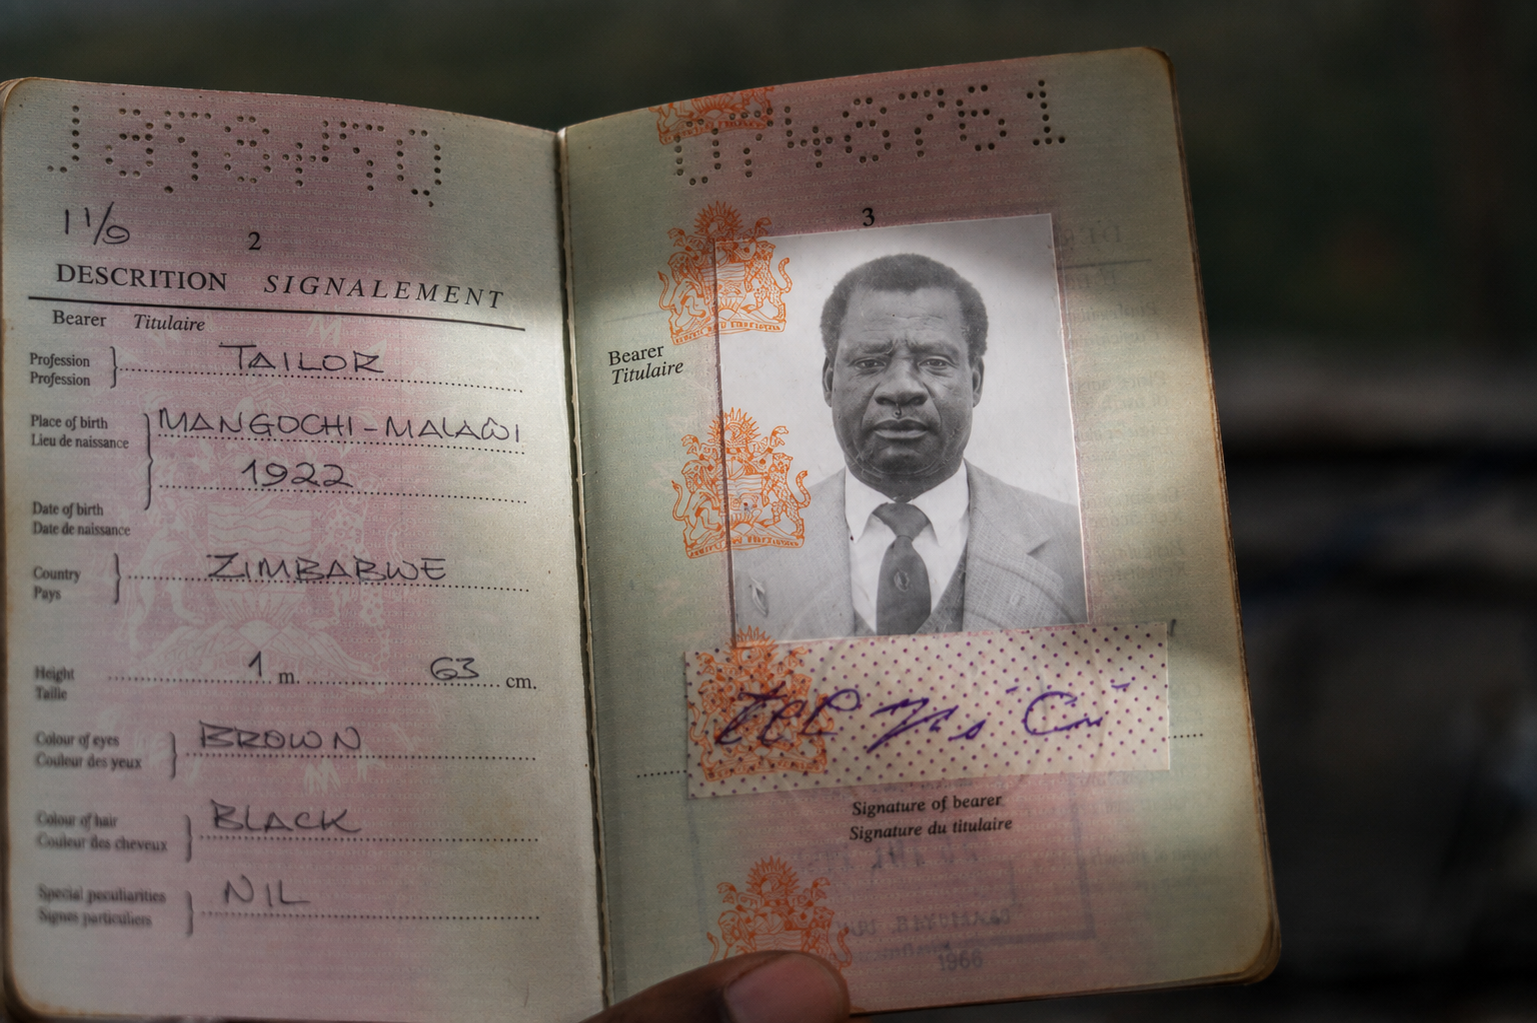 0748761
11/9
2
DESCRITION SIGNALEMENT
Bearer Titulaire
Profession
Profession
TAILOR
Place of birth
Lieu de naissance
MANGOCHI-MALAWI
1922
Date of birth
Date de naissance
Country
Pays
ZIMBABWE
Height
Taille
1 m. 63 cm.
Colour of eyes
Couleur des yeux
BROWN
Colour of hair
Couleur des cheveux
BLACK
Special peculiarities
Signes particuliers
NIL
3
Bearer
Titulaire
Signature of bearer
Signature du titulaire
1966